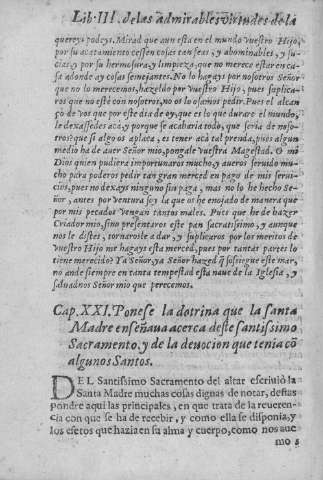 Lib. III. de las admirables virtudes de la
quereys podeys. Mirad que aun esta en el mundo vuestro Hijo,
por su acatamiento cessen cosas tan feas, y abominables, y su-
cias, y por su hermosura, y limpieza, que no merece estar en ca-
sa adonde ay cosas semejantes. No lo hagays por nosotros Señor
que no lo merecemos, hazeldo por vuestro Hijo, pues suplica-
ros que no esté con nosotros, no os lo osamos pedir. Pues el alcan
ço de vos que por este dia de oy, que es lo que durare el mundo,
le dexassedes acá, y porque se acabaria todo, que seria de noso-
tros? que si algo os aplaca, es tener acá tal prenda, pues algun
medio ha de auer Señor mio, pongale vuestra Magestad. O mi
Dios quien pudiera importunaros mucho, y aueros seruido mu-
cho para poderos pedir tan gran merced en pago de mis serui-
cios, pues no dexays ninguno sin paga, mas no lo he hecho Se-
ñor, antes por ventura soy la que os he enojado de manera que
por mis pecados vengan tantos males. Pues que he de hazer
Criador mio, sino presentaros este pan sacratissimo, y aunque
nos le distes, tornarosle a dar, y suplicaros por los meritos de
vuestro Hijo me hagays esta merced, pues por tantas partes lo
tiene merecido? Ya Señor, ya Señor hazed q̃ sosiegue este mar,
no ande siempre en tanta tempestad esta naue de la Iglesia, y
saluadnos Señor mio que perecemos.
Cap. XXI. Ponese la dotrina que la santa
Madre enseñaua acerca deste santissimo
Sacramento, y de la deuocion que tenia cõ
algunos Santos.
DEL Santissimo Sacramento del altar escriuiò la
Santa Madre muchas cosas dignas de notar, destas
pondre aqui las principales, en que trata de la reueren-
cia con que se ha de recebir, y como ella se disponia, y
los efetos que hazia en su alma y cuerpo, como nos aue
mos